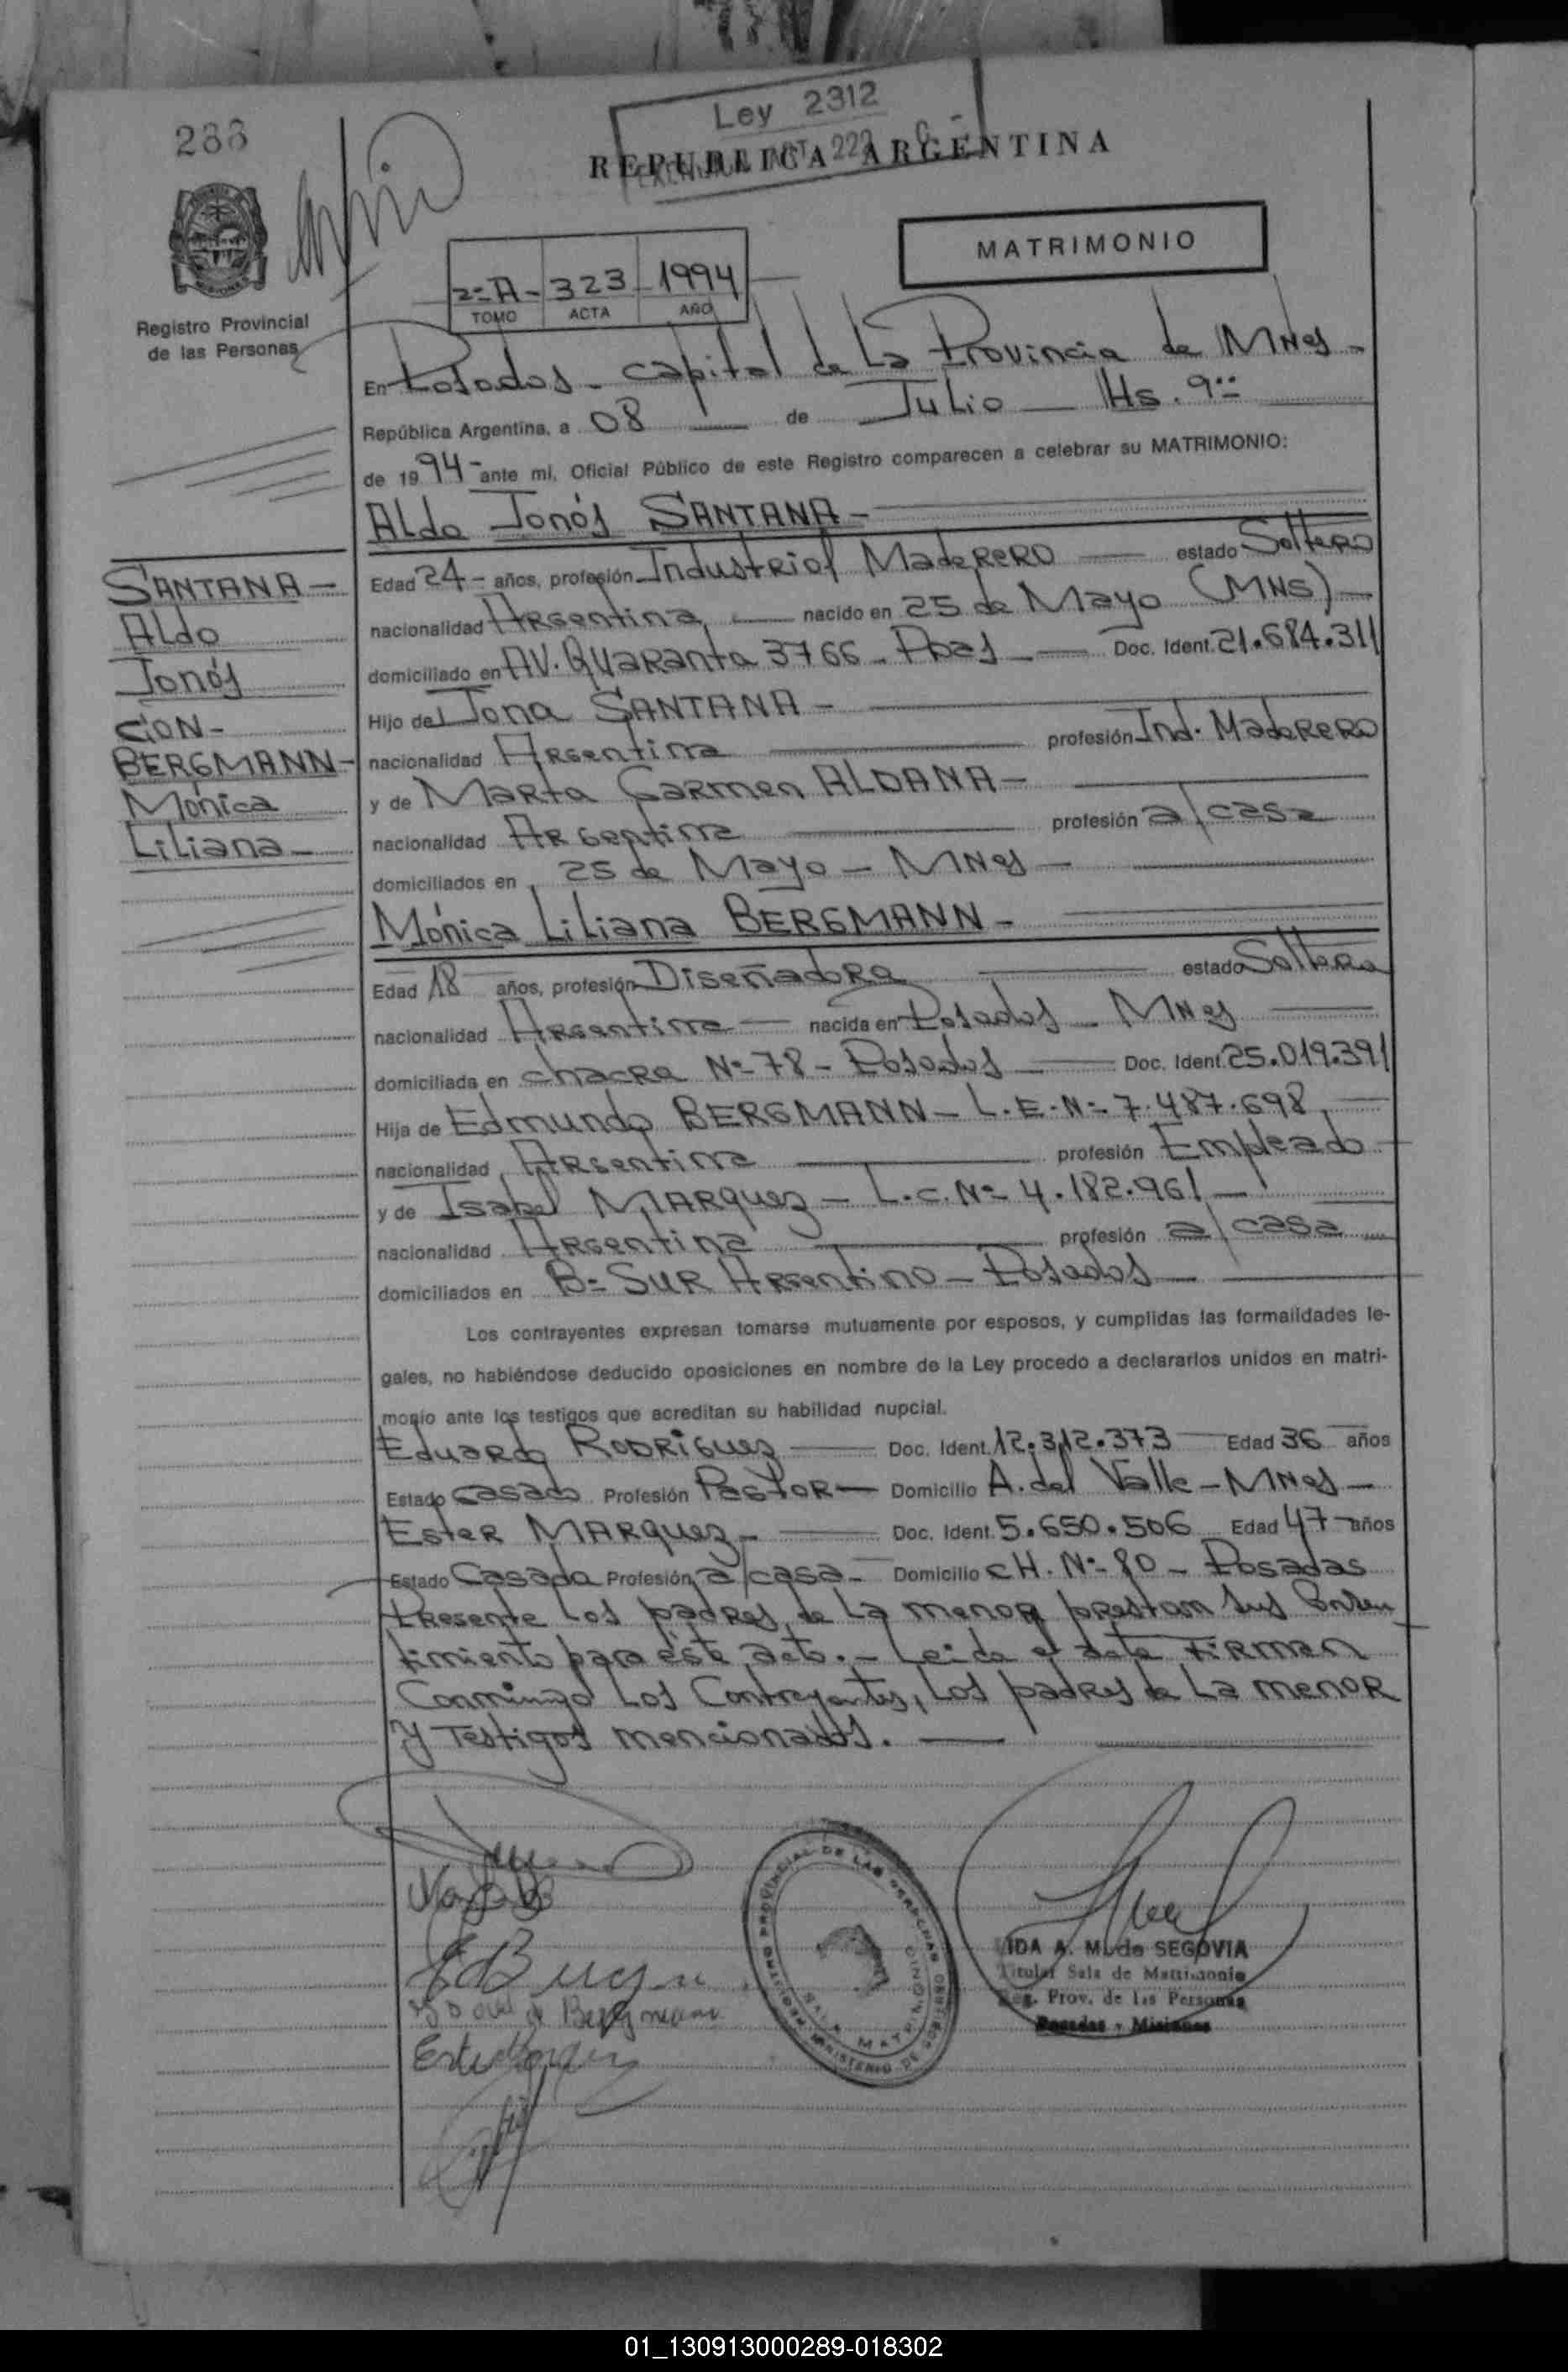 288
Ley 2312
ART. 222
REPUBLICA ARGENTINA
MATRIMONIO
2=A- 323 1994
TOMO ACTA AÑO
Registro Provincial
de las Personas
En Posadas - Capital de La Provincia de MNes -
República Argentina, a 08 de Julio Hs. 9
de 1994 ante mí, Oficial Público de este Registro comparecen a celebrar su MATRIMONIO:
Aldo Jonás SANTANA -
SANTANA -
Aldo
Jonás
CON -
BERGMANN -
Mónica
Liliana -
Edad 24 - años, profesión Industrial Maderero estado Soltero
nacionalidad Argentina nacido en 25 de Mayo (MNS) -
domiciliado en AV. Quaranta 3766 - Pdas - Doc. Ident. 21.684.311
Hijo de Jona SANTANA -
nacionalidad Argentina profesión Ind. Maderero
y de Marta Carmen ALDANA -
nacionalidad Argentina profesión a/casa
domiciliados en 25 de Mayo - MNes -
Mónica Liliana BERGMANN -
Edad 18 años, profesión Diseñadora estado Soltera
nacionalidad Argentina - nacida en Posadas - MNes
domiciliada en chacra Nº 78 - Posadas Doc. Ident. 25.019.391
Hija de Edmundo BERGMANN - L.E.Nº 7.487.698
nacionalidad Argentina profesión Empleado
y de Isabel MARQUEZ - L.C.Nº 4.182.961 -
nacionalidad Argentina profesión a/casa
domiciliados en Bº SUR Argentino - Posadas
Los contrayentes expresan tomarse mutuamente por esposos, y cumplidas las formalidades le-
gales, no habiéndose deducido oposiciones en nombre de la Ley procedo a declararlos unidos en matri-
monio ante los testigos que acreditan su habilidad nupcial.
Eduardo RODRIGUEZ Doc. Ident. 12.312.373 Edad 36 años
Estado casado Profesión Pastor - Domicilio A. del Valle - MNes -
Ester MARQUEZ - Doc. Ident. 5.650.506 Edad 47 años
Estado Casada Profesión a/casa - Domicilio CH. Nº 80 - Posadas
Presente los padres de la menor prestan sus Consen
timiento para éste acto. - Leida el acta FIRMAN
Conmigo Los Contrayentes, Los padres de La menor
y Testigos mencionados.
REGISTRO PROVINCIAL DE LAS PERSONAS
SALA MATRIMONIO
MINISTERIO DE GOBIERNO
A. M. de SEGOVIA
Titular Sala de Matrimonio
Reg. Prov. de las Personas
Posadas - Misiones
de Bergmann
01_130913000289-018302